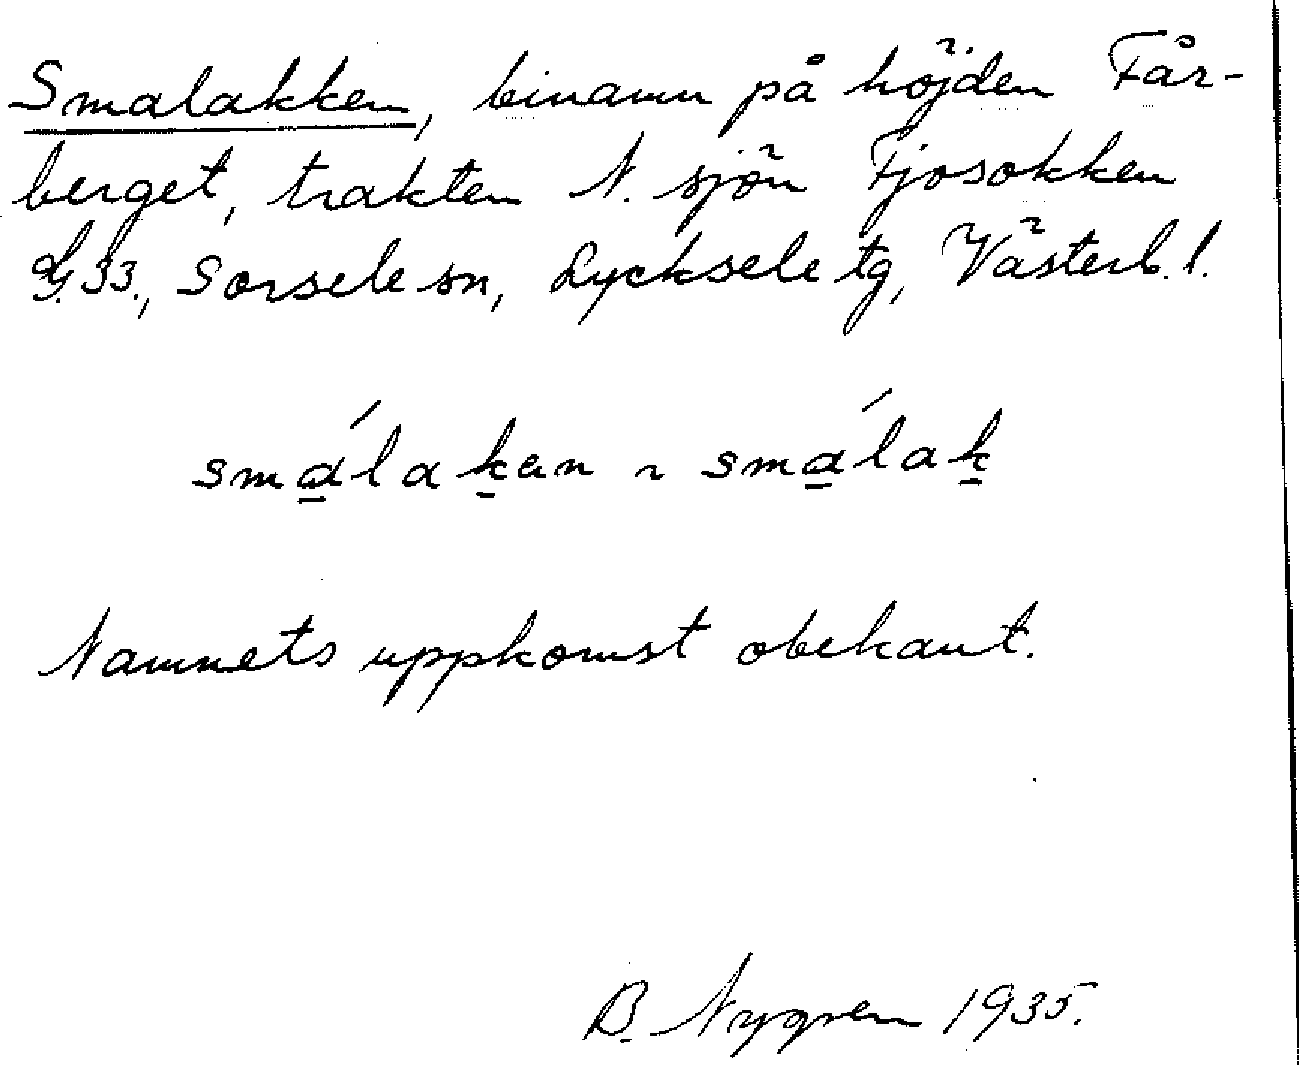 Smalakken, binamn på höjden Får-
berget, trakten N. sjön Fjosokken
Lg. 33., Sorsele sn, Lycksele tg, Västerb. l.
smálakan ~ smálak
Namnets uppkomst obekant.
B. Nygren 1935.